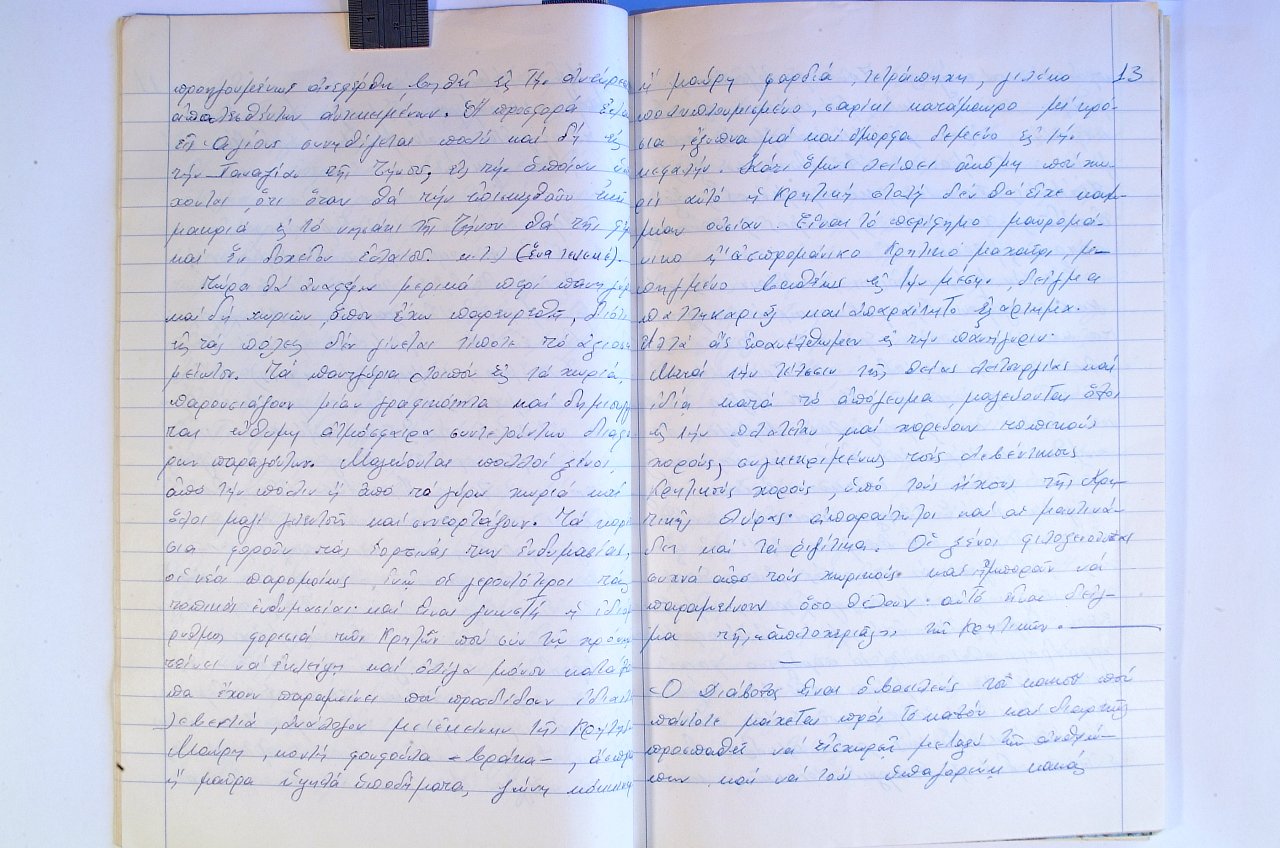 προηγουμένως ἀνεφέρθη βοηθεῖ εἰς τὴν ἀνεύρεσ
ἀπολεσθέντων ἀντικειμένων. Ἡ προσφορά ἐλαί
εἰς Ἁγίους συνηθίζεται πολύ καί δή εἰς
τὴν Παναγίαν τῆς Τήνου, εἰς τὴν ὁποίαν
χονται, ὅτι ὅταν θά τὴν ἐπισκεφθοῦν ἐκεῖ
μακριά εἰς τό νησάκι τῆς Τήνου θά τῆς
καί ἕν δοχεῖον ἐλαίου κ.τ.λ (ἕνα τενεκέ).
Τώρα θά ἀναφέρω μερικά περί πανηγύρ
καί δή χωριῶν, ὅπου ἔχω παρευρεθῆ, διότι
εἰς τάς πόλεις δέν γίνεται τίποτε τό ἀξιοση
μείωτον. Τά πανηγύρια λοιπόν εἰς τά χωριά,
παρουσιάζουν μίαν γραφικότητα καί δημιουργ
ται εὔθυμη ἀτμόσφαιρα συντελούντων διαφό
ρων παραγόντων. Μαζεύονται πολλοί ξένοι
ἀπό τὴν πόλιν ἤ ἀπό τά γύρω χωριά καί
ὅλοι μαζί γλεντοῦν καί συνεορτάζουν. Τά κορί
σια φοροῦν τάς ἑορτινάς των ἐνδυμασίας,
οἱ νέοι παρομοίως, ἐνῷ οἱ γεροντότεροι τάς
τοπικάς ἐνδυμασίας καί εἶναι γνωστή ἡ ἰδιόρ
ρυθμος φορεσιά τῶν Κρητῶν πού σύν τῷ χρόνῳ
τείνει νά ἐκλείψῃ καί ὀλίγα μόνον κατάλοι
πα ἔχουν παραμείνει πού προσδίδουν ἰδιαιτ
λεβεντιά, ἀνάλογον μέ ἐκείνην τῆς Κρήτης.
Μαύρη, κοντή φουφούλα – βράκα –, ἄσπρα
ἤ μαῦρα ὑψηλά ὑποδήματα, ζώνη κόκκινη
13
ἤ μαύρη φαρδιά, τετράπηχη, γιλέκο
πολυπλουμισμένο, σαρίκι κατάμαυρο μέ κρό
σια, ἔξυπνα μά καί ὄμορφα δεμένο εἰς τήν
κεφαλήν. Κάτι ὅμως λείπει ἀκόμη πού χω
ρίς αὐτό ἡ Κρητική στολή δέν θά εἶχε καμ-
μίαν οὐσίαν. Εἶναι τό περίφημο μαυρομά-
νικο ἤ ἀσπρομάνικο Κρητικό μαχαίρι, μπ-
πηγμένο βαθέως εἰς τήν μέση, δείγμα
παλληκαριᾶς καί ἀπαραίτητο ἐξάρτημα.
Ἀλλά ἄς ἐπανέλθωμεν εἰς τήν πανήγυριν.
Μετά τήν τέλεσιν τῆς θείας λειτουργίας καί
ἰδίᾳ κατά τό ἀπόγευμα, μαζεύονται ὅλοι
εἰς τήν πλατεῖαν καί χορεύουν τοπικούς
χορούς, συγκεκριμένως τούς λεβέντικους
Κρητικούς χορούς, ὑπό τούς ἤχους τῆς Κρη-
τικῆς λύρας· ἀπαραίτητοι καί αἱ μαντινά-
δες καί τά ριζίτικα. Οἱ ξένοι φιλοξενοῦνται
συχνά ἀπό τούς χωρικούς καί ἠμποροῦν νά
παραμείνουν ὅσο θέλουν· αὐτό εἶναι δεῖγ-
μα τῆς καλοχεριᾶς τῶν Κρητικῶν.
Ὁ Διάβολος εἶναι ὁ βασιλεύς τοῦ κακοῦ πού
πάντοτε μάχεται πρός τό καλόν καί διαρκῶς
προσπαθεῖ νά εἰσχωρῇ μεταξύ τῶν ἀνθρώ-
πων καί νά τούς ὑπαγορεύῃ κακάς